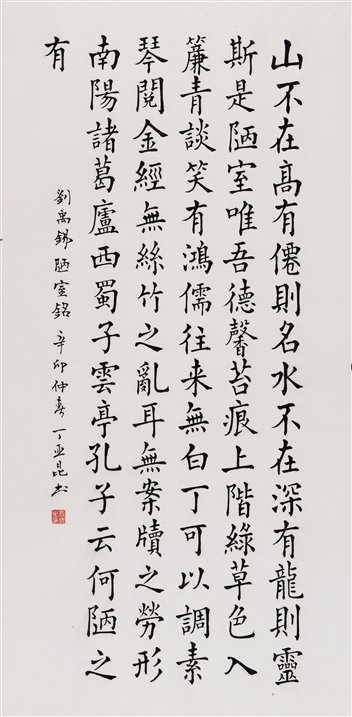 山不在高有僊則名水不在深有龍則靈
斯是陋室唯吾德馨苔痕上階綠草色入
簾青談笑有鴻儒往来無白丁可以調素
琴閱金經無絲竹之亂耳無案牘之勞形
南陽諸葛廬西蜀子雲亭孔子云何陋之
有
劉禹錫陋室銘 辛卯仲春丁亚昆书